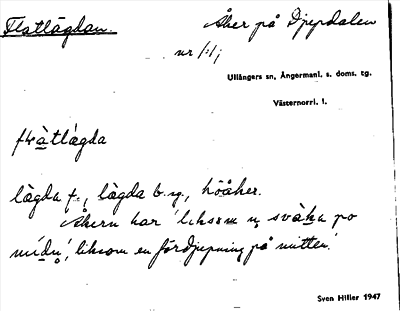 Flatlägdan.
Åker på Djupdalen
nr 1:1;
Ullångers sn, Ångermanl. s. doms. tg.
Västernorrl. l.
flàtlägda
lägda f., lägda b. sg., hööåker.
Åkern har 'liksom n svàka po
midn', liksom en fördjupning på mitten.
Sven Hiller 1947